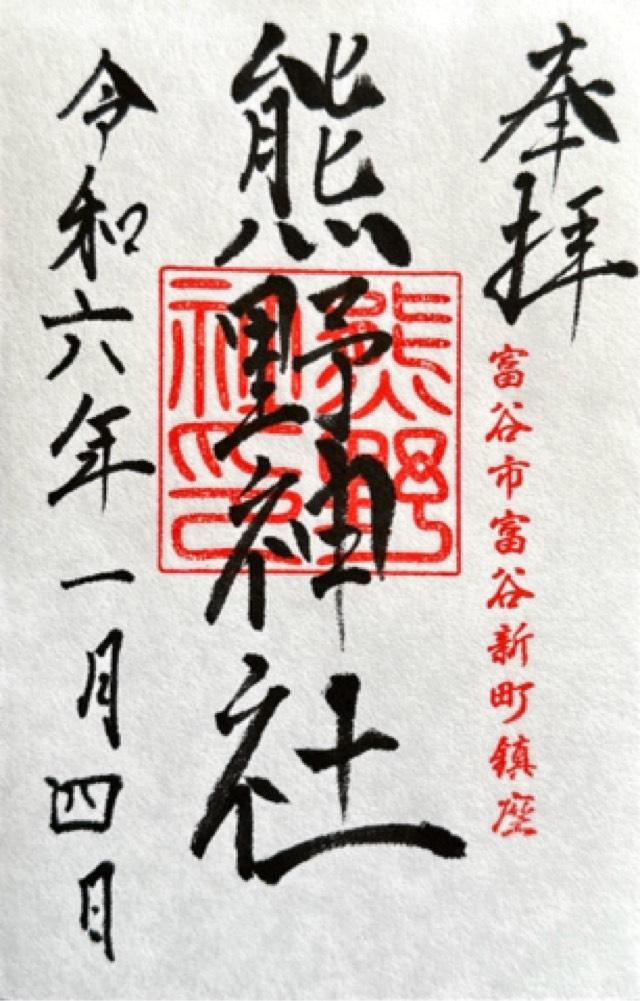 奉拝
富谷市富谷新町鎮座
熊野神社
熊野社印
令和六年一月四日